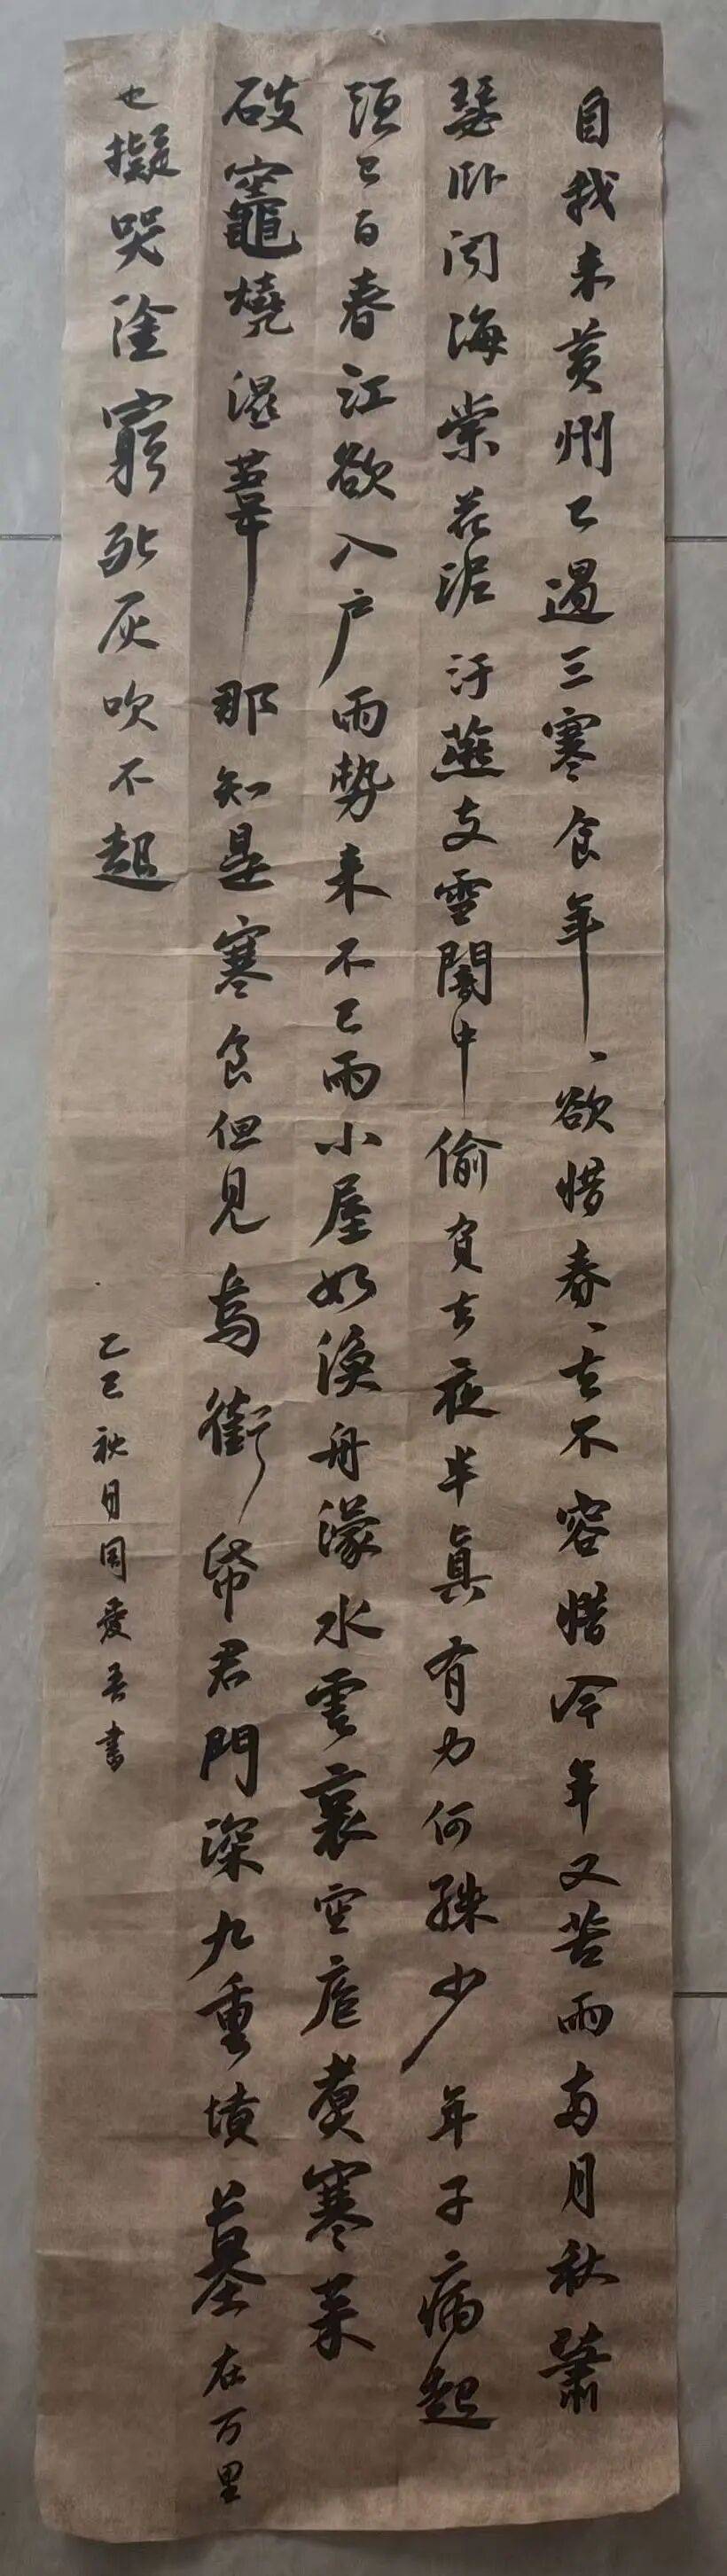 自我来黄州已過三寒食年、欲惜春、去不容惜今年又苦雨兩月秋蕭
瑟卧闻海棠花泥汙燕支雪闇中偷負去夜半真有力何殊少年子病起
须已白春江欲入户雨勢来不已雨小屋如漁舟濛水雲裏空庖煮寒菜
破竈燒濕葦那知是寒食但見烏銜帋君門深九重墳墓在万里
也擬哭塗窮死灰吹不起
乙巳秋月周爱吾書